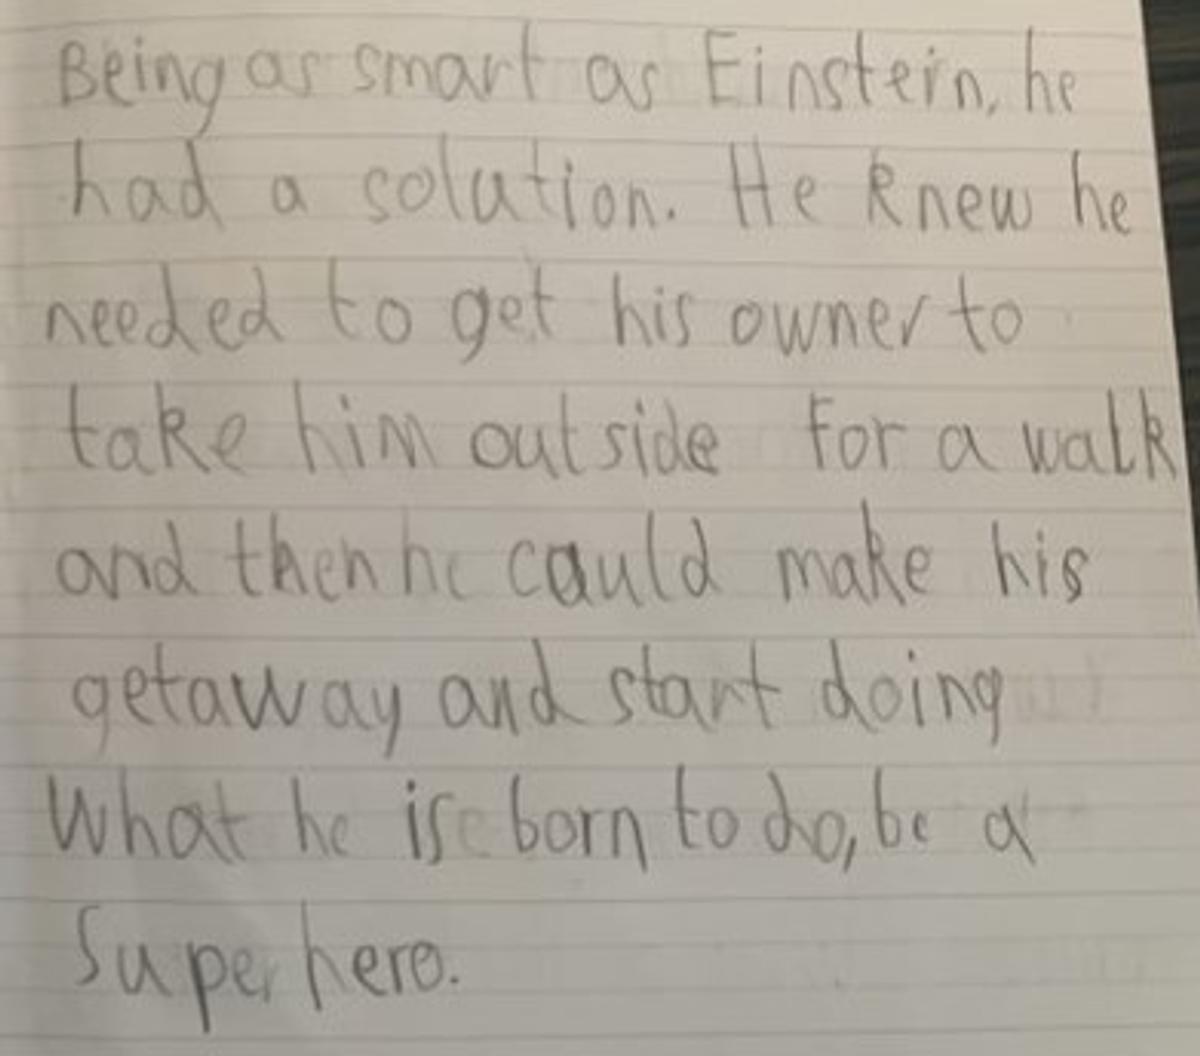 Being as smart as Einstein, he
had a solution. He knew he
needed to get his owner to
take him outside for a walk
and then he cauld make his
getaway and start doing
What he is born to do, be a
Super hero.